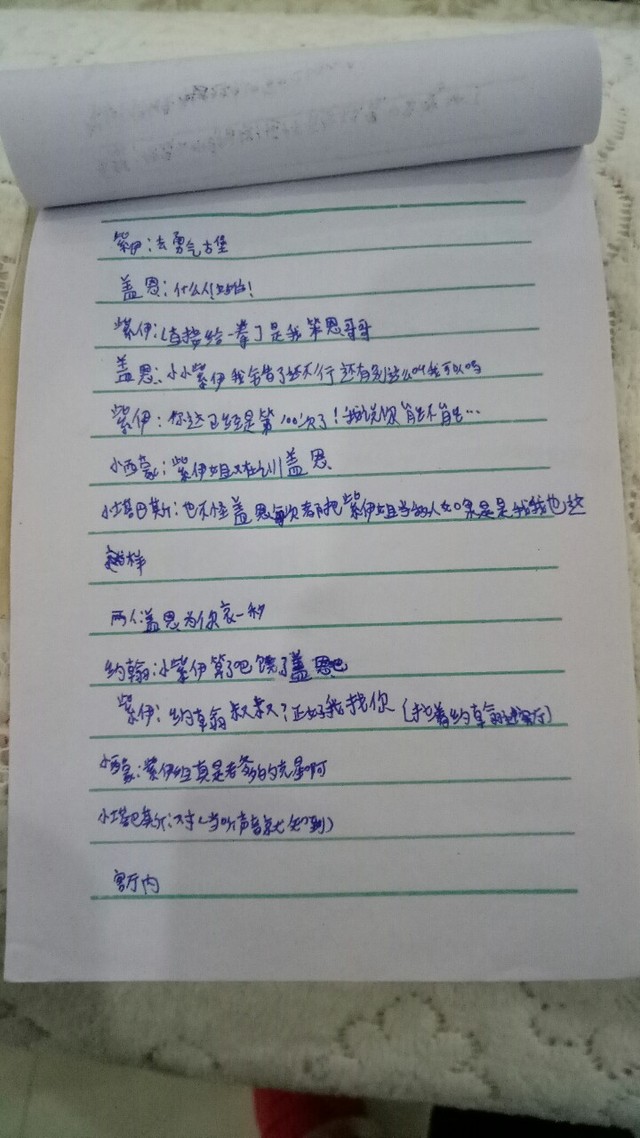 紫伊：去勇气古堡
盖恩：什么人
紫伊：（直接给一拳）是我 笨恩哥哥
盖恩：小小紫伊我 还有别这么叫我可以吗
紫伊：你这已经是第100次了！我说你能不能…
小西蒙：紫伊姐又在训盖恩
小塔巴斯：也不怪盖恩每次都把紫伊姐当敌人如果是是我我也这
样
两人：盖恩为你哀一秒
约翰：小紫伊算了吧饶了盖恩吧
紫伊：约翰叔叔？正好我找你（拉着约翰进客厅）
小西蒙：紫伊姐真是老爹的克星啊
小塔巴斯：对（当听声音就知到）
客厅内